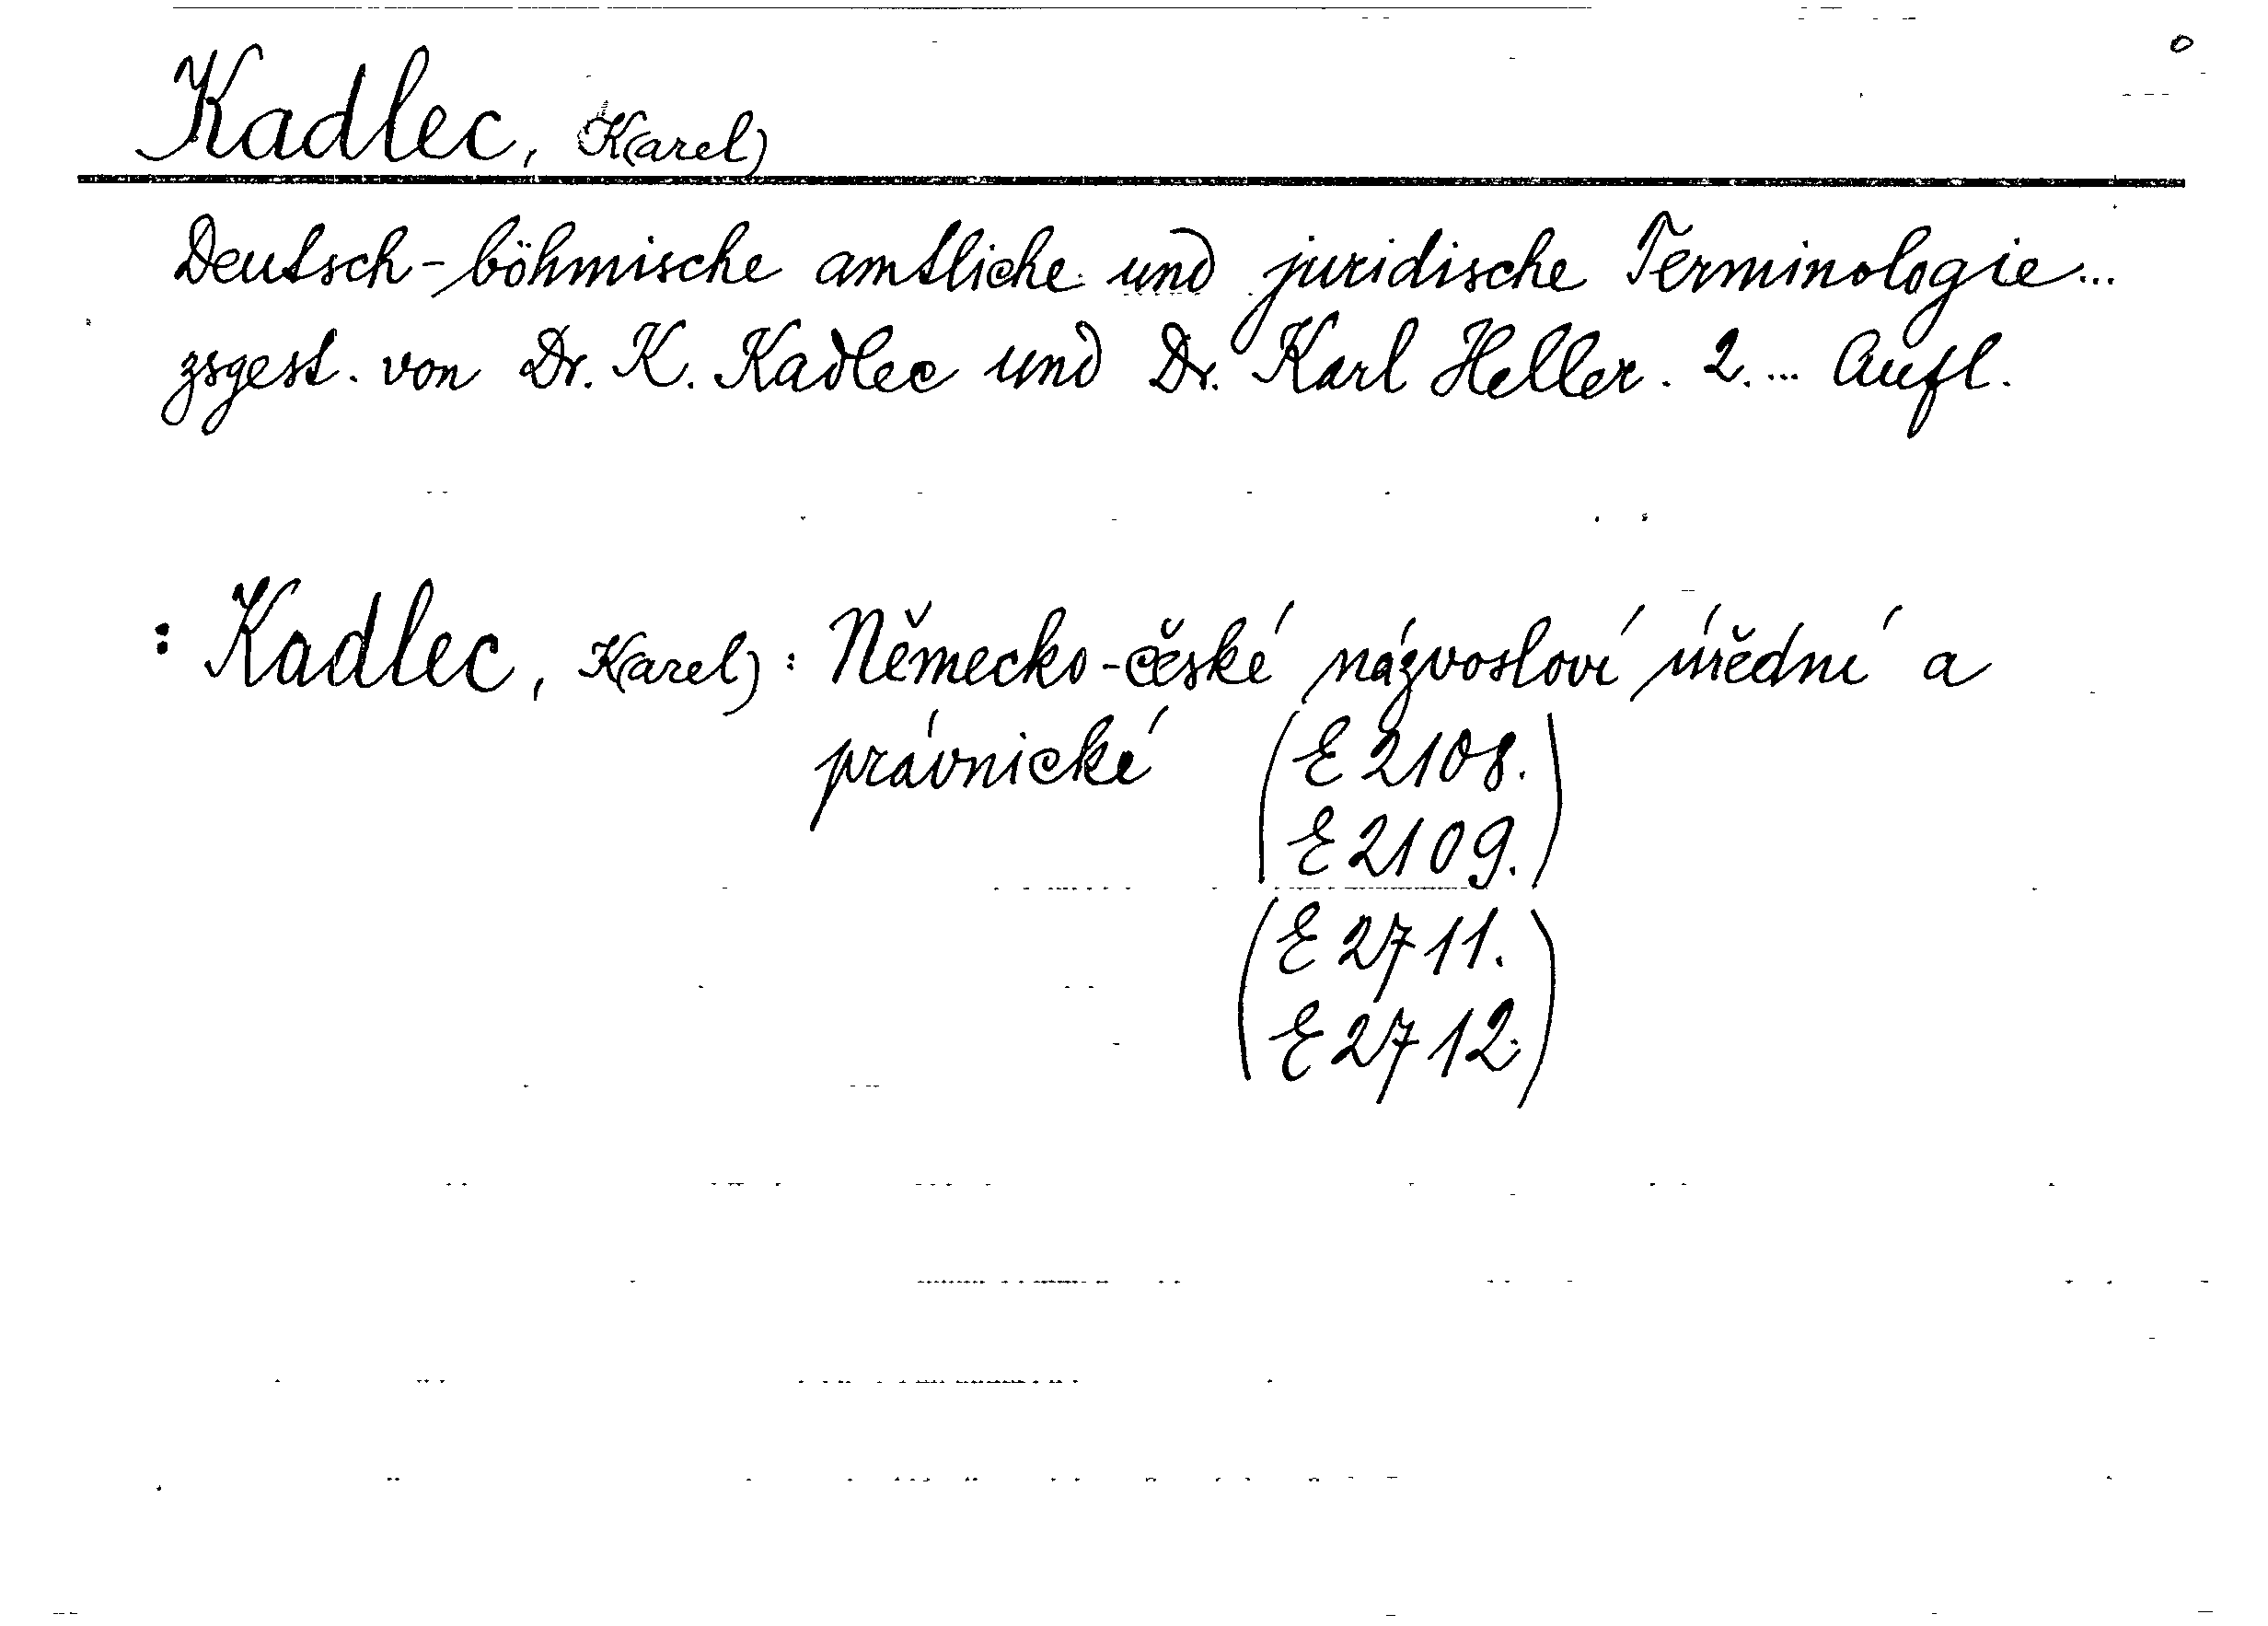 Kadlec, K(arel)
Deutsch-böhmische amtliche und juridische Terminologie...
zsgest. von Dr. K. Kadlec und Dr. Karl Heller. 2. ... Aufl.
: Kadlec, K(arel): Německo-české názvosloví úřední a
právnické (E 2108.
E 2109.)
(E 2711.
E 2712.)